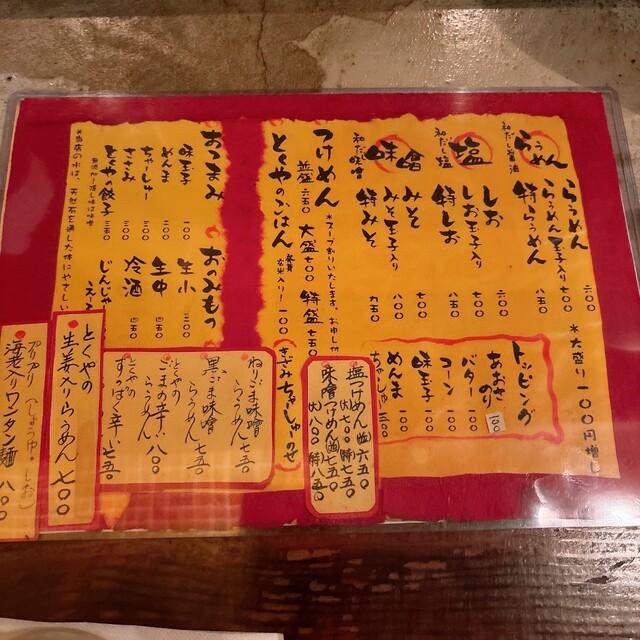 らぅめん
和だし醤油
らぅめん 六〇〇
らぅめん玉子入り 七〇〇
特らぅめん 八五〇
＊大盛り一〇〇円増し
塩
和だし塩
しお 六〇〇
しお玉子入り 七〇〇
特しお
味噌
和だし味噌
みそ 七〇〇
みそ玉子入り 八〇〇
特みそ 九五〇
トッピング
あおさのり 100
バター 一〇〇
コーン 一〇〇
味玉子 一〇〇
めんま 一〇〇
ちゃしゅー 三〇〇
つけめん
＊スープ割りいたします。お申し付
並盛 六五〇 大盛 七〇〇 特盛 七五〇
塩つけめん 並 六五〇
大 七〇〇 特 七五〇
味噌つけめん 並 七五〇
大 八〇〇 特 八五〇
とくやのごはん
発芽玄米入り！ 一〇〇
(きざみちゃーしゅーのせ)
おつまみ
味玉子 一〇〇
めんま 二〇〇
ちゃーしゅー 三〇〇
きざみ 二〇〇
とくやの餃子 三五〇
おのみもの
生小 三〇〇
生中 四五〇
冷酒 四五〇
じんじゃーえーる
＊当店の水は、天然石を通した体にやさしい
ねりごま味噌らぅめん 七五〇
黒ごま味噌らぅめん 七五〇
とくやのごまの辛いらぅめん 八〇〇
とくやのすっぱく辛い 七五〇
とくやの
生姜入りらぅめん 七〇〇
プリプリ (しょうゆ・しお)
海老入りワンタン麺 八〇〇